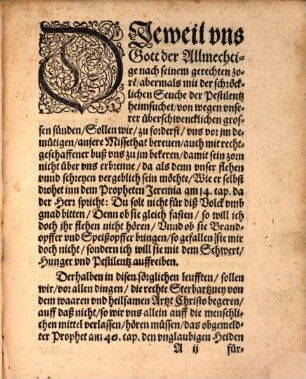 DJeweil vns
Gott der Allmechti-
ge nach seinem gerechten zo-
rē/abermals mit der schröck-
lichen Seuche der Pestilentz
heimsuchet/von wegen vnse-
rer überschwencklichen gros-
sen sünden/Sollen wir/zu forderst/vns vor im de-
mütigen/vnsere Missethat bereuen/auch mit recht-
geschaffener buß vns zu jm bekeren/damit sein zorn
nicht über vns erbrenne/da als denn vnser flehen
vnnd schreyen vergeblich sein möchte/Wie er selbst
drohet inn dem Propheten Jeremia am 14. cap. da
der Herr spricht: Du solt nicht für diß Volck vmb
gnad bitten/Denn ob sie gleich fasten/so will ich
doch ihr flehen nicht hören/Vnnd ob sie Brand-
opffer vnd Speißopffer bringen/so gefallen sie mir
doch nicht/sondern ich will sie mit dem Schwert/
Hunger vnd Pestilentz auffreiben.
Derhalben in disen sorglichen leufften/sollen
wir/vor allen dingen/die rechte Sterbartzney von
dem waaren vnd heilsamen Artzt Christo begeren/
auff daß nicht/so wir vns allein auff die menschli-
chen mittel verlassen/hören müssen/das obgemeld-
ter Prophet am 46. cap. den vnglaubigen Heiden
A ij für-